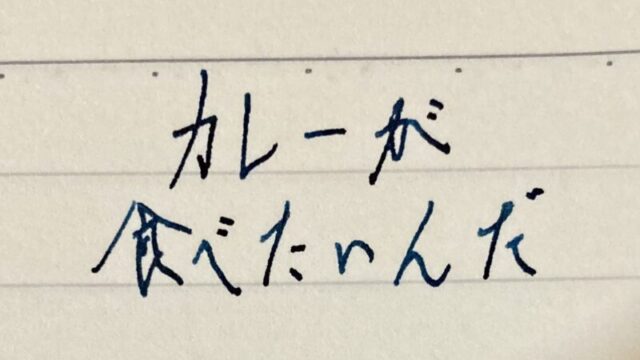 カレーが
食べたいんだ